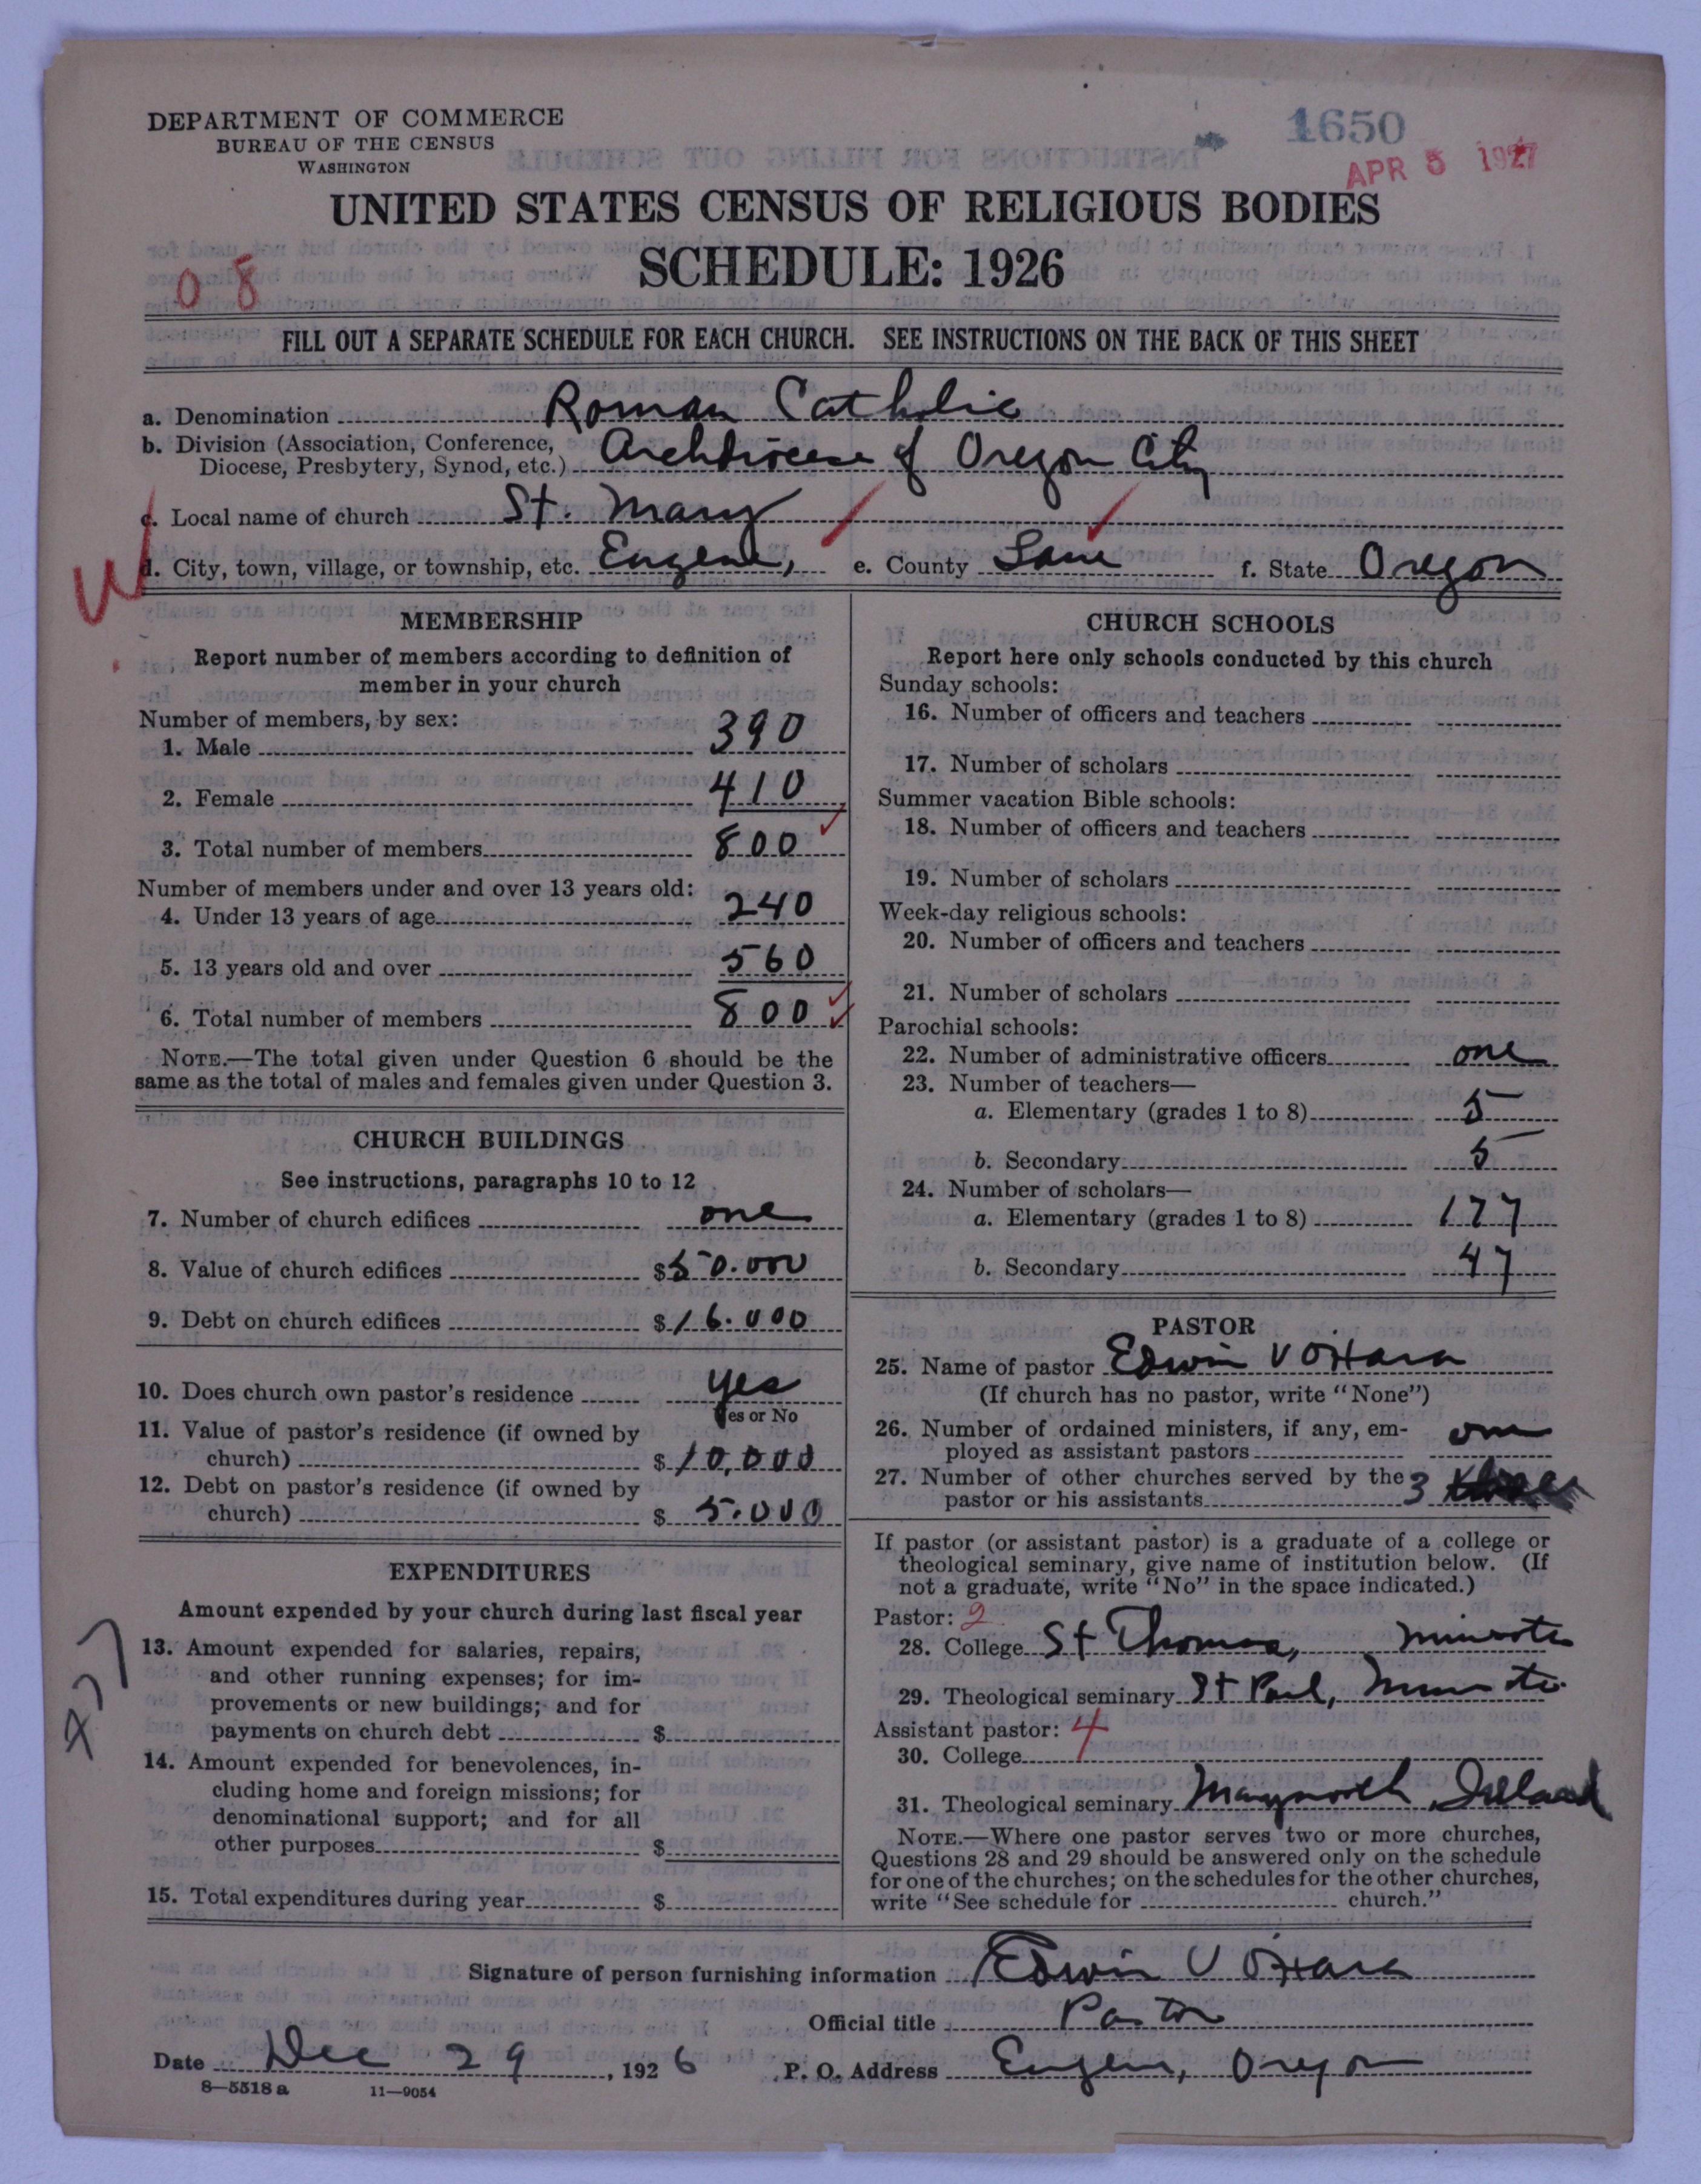 DEPARTMENT OF COMMERCE
BUREAU OF THE CENSUS
WASHINGTON
1650
APR 5 1927
UNITED STATES CENSUS OF RELIGIOUS BODIES
SCHEDULE: 1926
08
FILL OUT A SEPARATE SCHEDULE FOR EACH CHURCH. SEE INSTRUCTIONS ON THE BACK OF THIS SHEET
a. Denomination Roman Catholic
b. Division (Association, Conference, Diocese, Presbytery, Synod, etc.) Archdiocese of Oregon City
c. Local name of church St. Mary
d. City, town, village, or township, etc. Eugene, e. County Lane f. State Oregon
MEMBERSHIP
Report number of members according to definition of
member in your church
Number of members, by sex:
1. Male 390
2. Female 410
3. Total number of members 800
Number of members under and over 13 years old:
4. Under 13 years of age 240
5. 13 years old and over 560
6. Total number of members 800
NOTE.—The total given under Question 6 should be the
same as the total of males and females given under Question 3.
CHURCH BUILDINGS
See instructions, paragraphs 10 to 12
7. Number of church edifices one
8. Value of church edifices $50.000
9. Debt on church edifices $16.000
10. Does church own pastor's residence yes
Yes or No
11. Value of pastor's residence (if owned by
church) $10,000
12. Debt on pastor's residence (if owned by
church) $5.000
EXPENDITURES
Amount expended by your church during last fiscal year
13. Amount expended for salaries, repairs,
and other running expenses; for im-
provements or new buildings; and for
payments on church debt $
14. Amount expended for benevolences, in-
cluding home and foreign missions; for
denominational support; and for all
other purposes $
15. Total expenditures during year $
CHURCH SCHOOLS
Report here only schools conducted by this church
Sunday schools:
16. Number of officers and teachers
17. Number of scholars
Summer vacation Bible schools:
18. Number of officers and teachers
19. Number of scholars
Week-day religious schools:
20. Number of officers and teachers
21. Number of scholars
Parochial schools:
22. Number of administrative officers one
23. Number of teachers—
a. Elementary (grades 1 to 8) 5
b. Secondary 5
24. Number of scholars—
a. Elementary (grades 1 to 8) 177
b. Secondary 47
PASTOR
25. Name of pastor Edwin V O'Hara
(If church has no pastor, write "None")
26. Number of ordained ministers, if any, em-
ployed as assistant pastors one
27. Number of other churches served by the
pastor or his assistants 3
If pastor (or assistant pastor) is a graduate of a college or
theological seminary, give name of institution below. (If
not a graduate, write "No" in the space indicated.)
Pastor: 2
28. College St Thomas, Minnesota
29. Theological seminary St Paul, Minnesota
Assistant pastor: 4
30. College
31. Theological seminary Maynooth, Ireland
NOTE.—Where one pastor serves two or more churches,
Questions 28 and 29 should be answered only on the schedule
for one of the churches; on the schedules for the other churches,
write "See schedule for church."
Signature of person furnishing information Edwin V O'Hara
Official title Pastor
Date Dec 29, 1926 P. O. Address Eugene, Oregon
8-5518a 11-9054